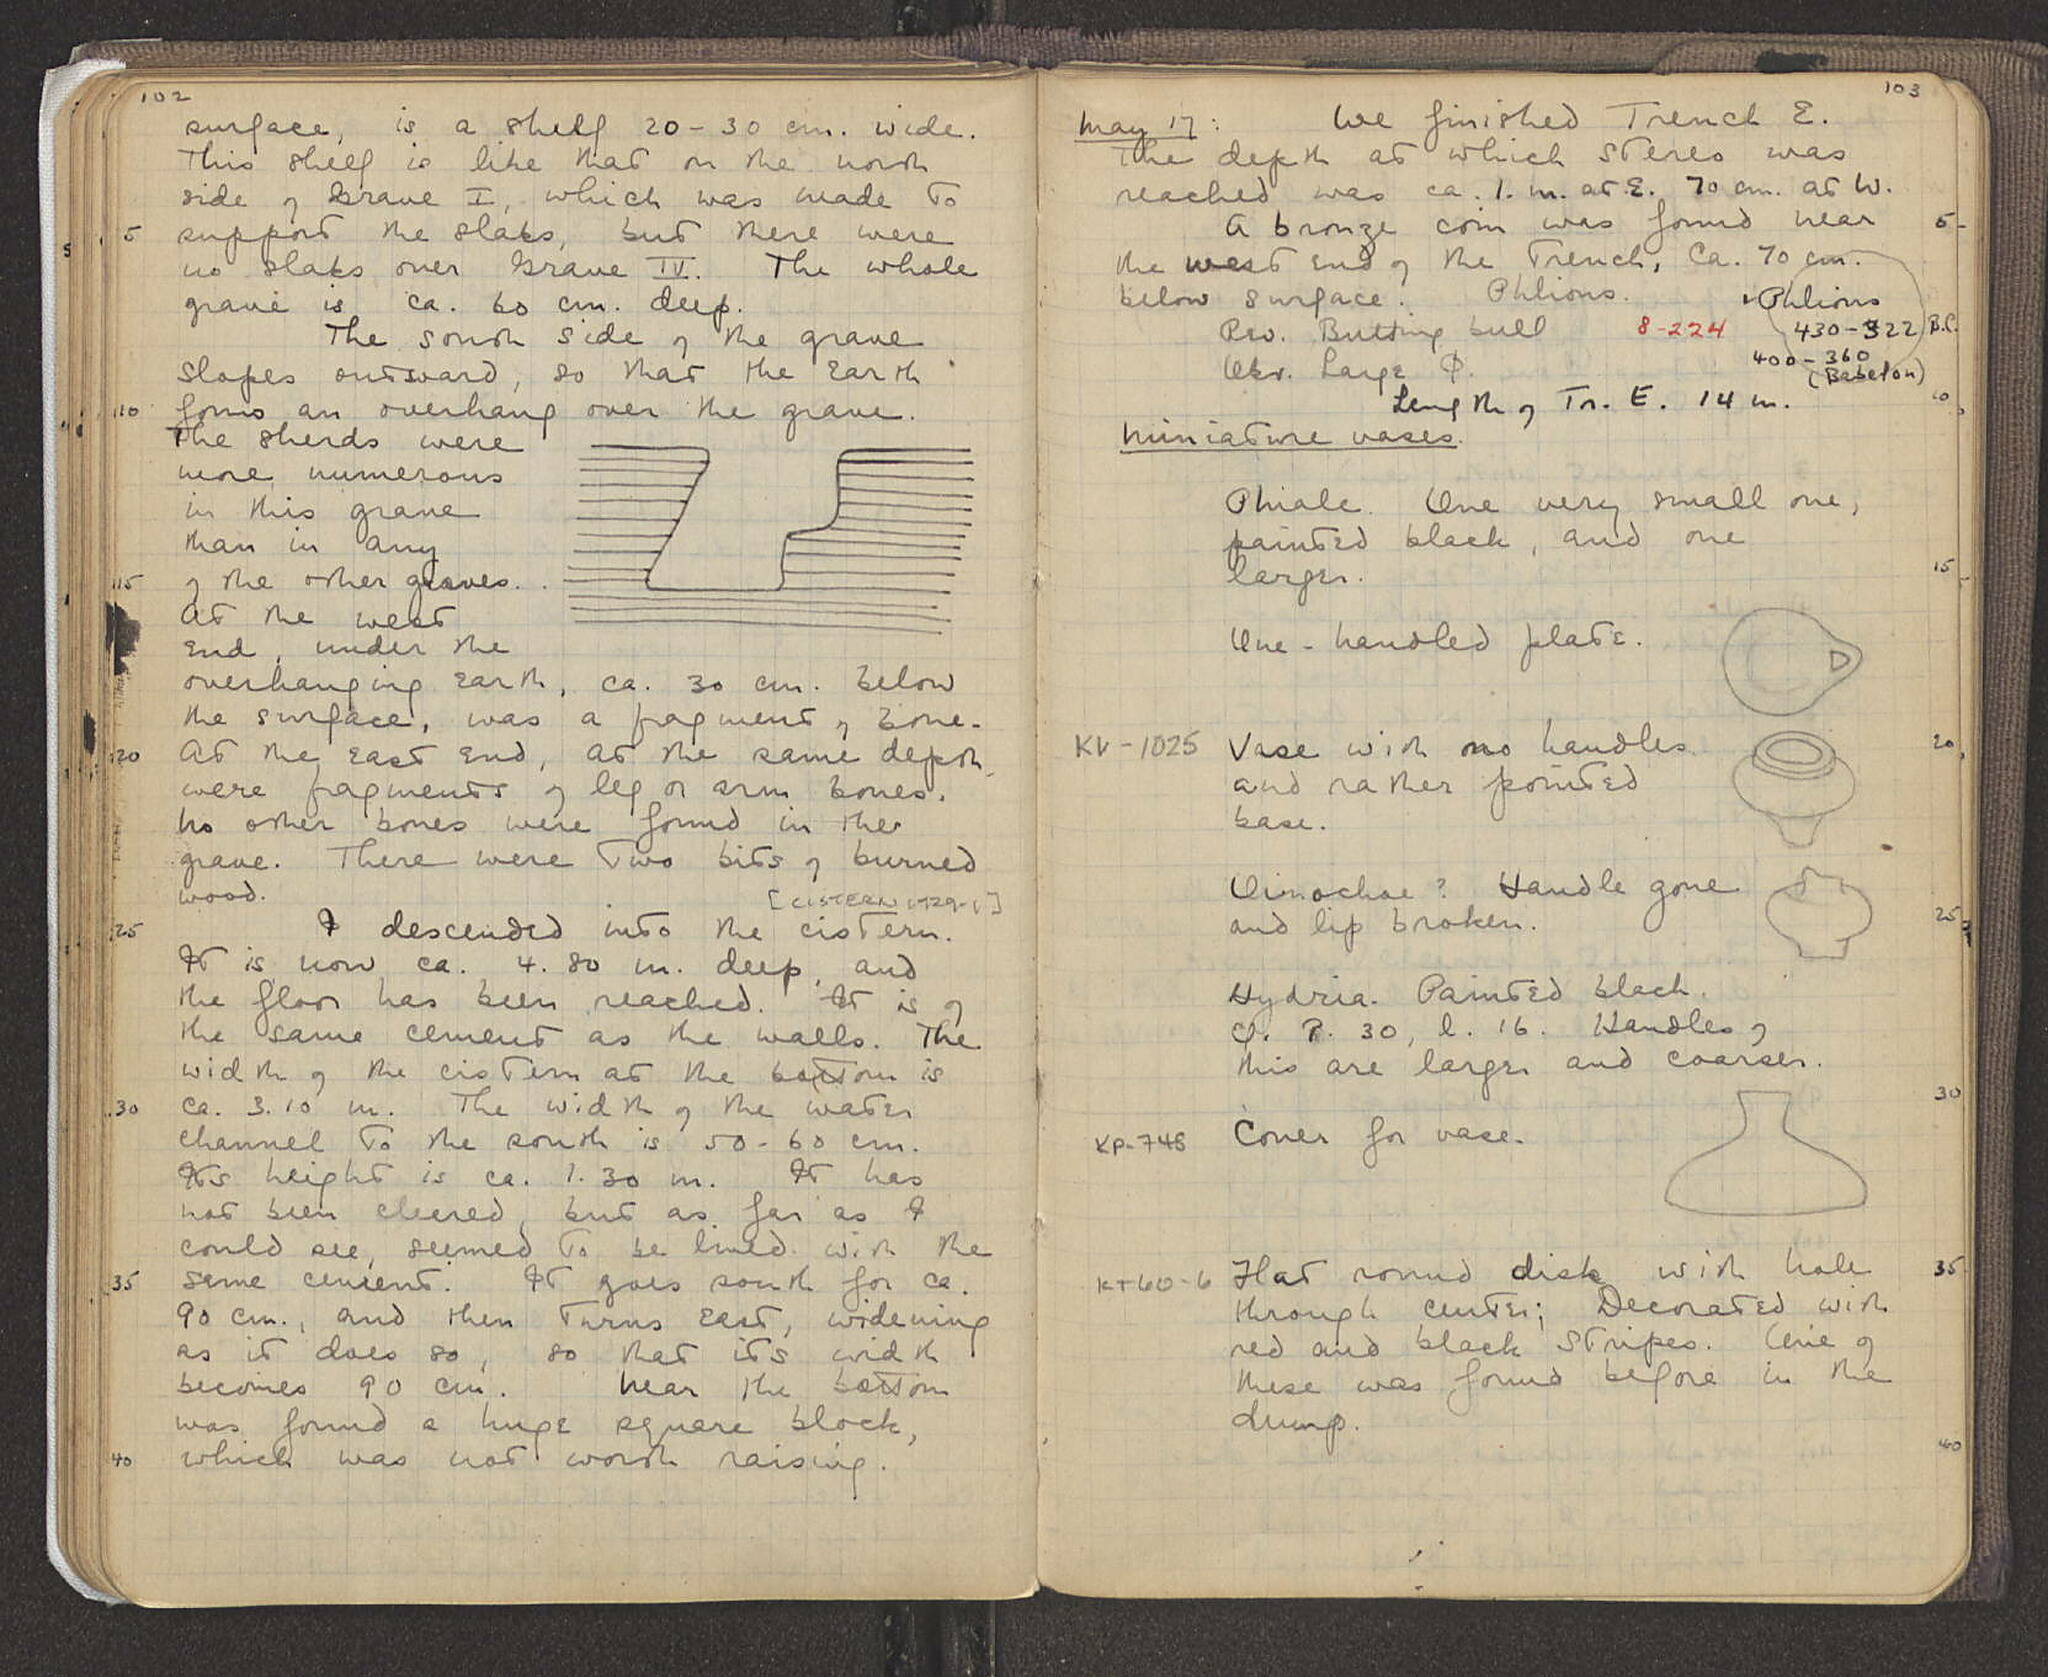 102
surface, is a shelf 20-30 cm. wide.
This shelf is like that on the north
side of Grave I, which was made to
5 support the slabs, but there were
no slabs over Grave IV. The whole
grave is ca. 60 cm. deep.
The south side of the grave
slopes outward, so that the earth
10 forms an overhang over the grave.
The sherds were
more numerous
in this grave
than in any
15 of the other graves.
At the west
end, under the
overhanging earth, ca. 30 cm. below
the surface, was a fragment of bone.
20 At the east end, at the same depth,
were fragments of leg or arm bones.
No other bones were found in the
grave. There were two bits of burned
wood. [CISTERN 1929-1]
25 I descended into the cistern.
It is now ca. 4.80 m. deep, and
the floor has been reached. It is of
the same cement as the walls. The
width of the cistern at the bottom is
30 ca. 3.10 m. The width of the water
channel to the south is 50-60 cm.
Its height is ca. 1.30 m. It has
not been cleared, but as far as I
could see, seemed to be lined with the
35 same cement. It goes south for ca.
90 cm., and then turns east, widening
as it does so, so that its width
becomes 90 cm. Near the bottom
was found a huge square block,
40 which was not worth raising.
103
May 17: We finished Trench E.
The depth at which stereo was
reached was ca. 1. m. at E. 70 cm. at W.
A bronze coin was found near 5
the west end of the Trench, Ca. 70 cm.
below surface. Phlious. Phlious
Rev. Butting bull 8-224 430-322 B.C.
Obv. Large Φ. 400-360
(Babelon)
Length of Tr. E. 14 m. 10
Miniature vases.
Phiale. One very small one,
painted black, and one
larger. 15
One-handled plate.
KV-1025 Vase with no handles 20
and rather pointed
base.
Oinochoe? Handle gone
and lip broken. 25
Hydria. Painted black.
Cf. P. 30, l. 16. Handles of
this are larger and coarser.
30
KP-748 Cover for vase.
KT60-6 Flat round disk with hole 35
through center; Decorated with
red and black stripes. One of
these was found before in the
dump.
40